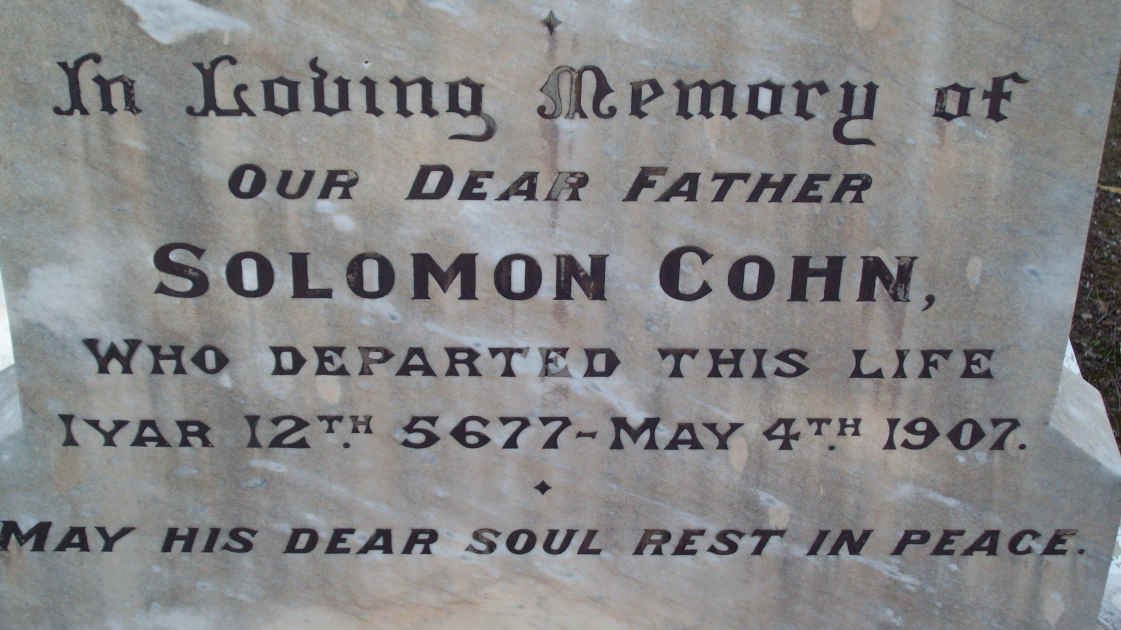 In Loving Memory of
OUR DEAR FATHER
SOLOMON COHN,
WHO DEPARTED THIS LIFE
IYAR 12TH. 5677-MAY 4TH. 1907.
MAY HIS DEAR SOUL REST IN PEACE.